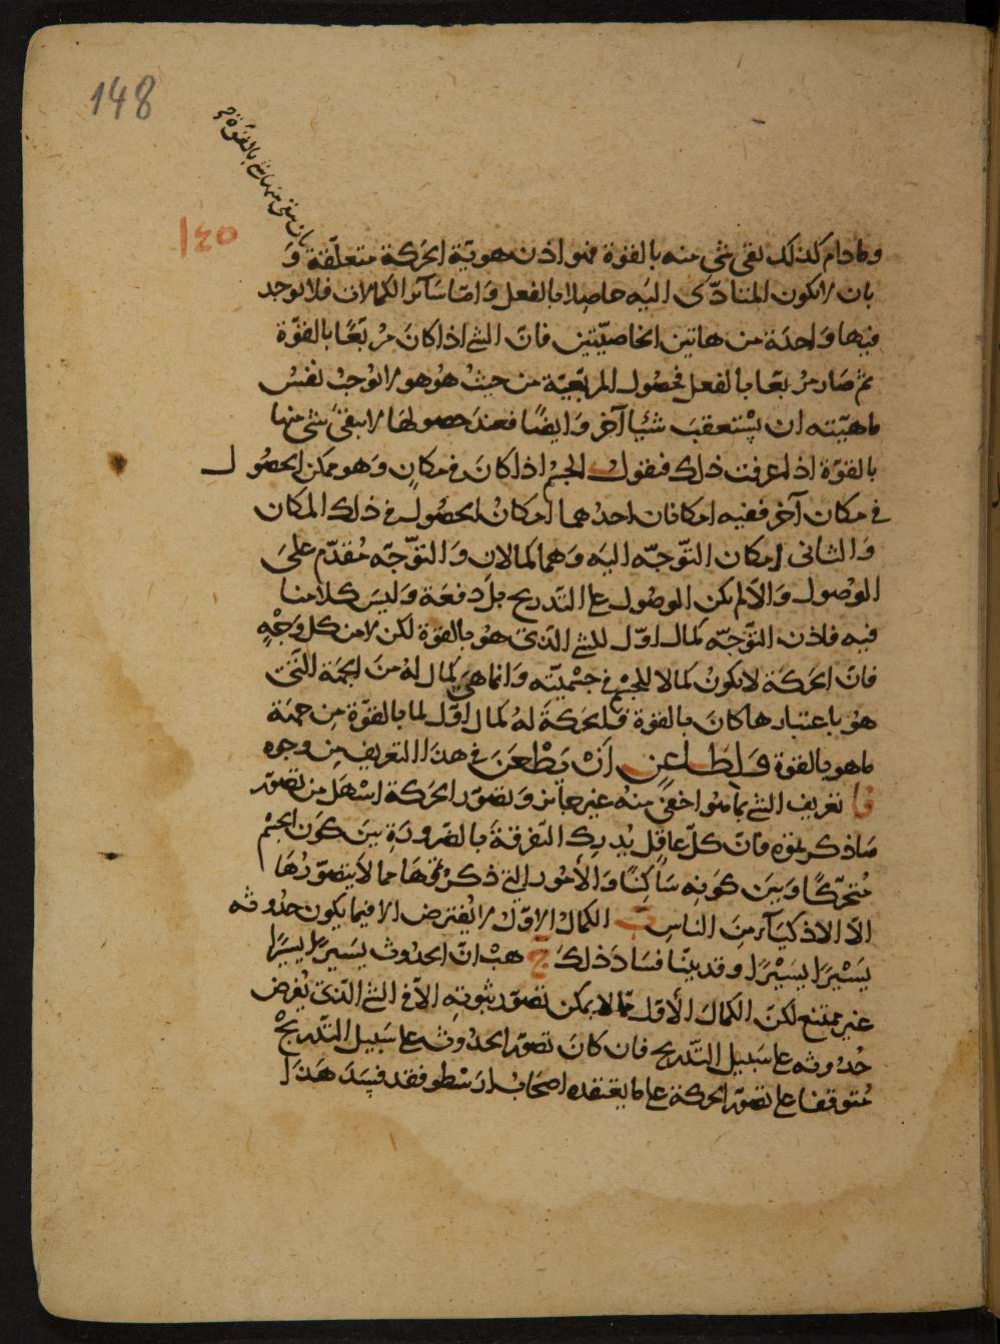 148
١٤٥
بان يبقى منها شئ بالقوة
وما دام كذلك بقى شئ منه بالقوة فهو اذن هويّة الحركة متعلّقة وَ
بان لا يكون المتادّى اليَه حاصِلا بالفعل وَامّا سَائر الكمالات فلا يوجد
فيها وَاحدَة من هاتين الخاصيّتين فانّ الشئ اذا كانَ مُربّعًا بالقوّة
ثم صَار مُربعًا بالفعل فحصُول المربّعيّة من حيثُ هُو هو لا يُوجبُ نفسُ
ماهيّته ان يسْتعقبَ شيئا آخر وَايضًا فعندَ حصولها لا يبقىَ شئ منها
بالقوّة اذا عرفت ذلك فنقول الجسْم اذا كانَ فى مكانٍ وَهو ممكن الحصُول
فى مكان آخر ففيه امكانان احدُهما امكانُ الحصُول فى ذلك المكان
وَالثانى امكان التوّجّه اليَه وَهما كمالان وَالتوّجّه مُقدّم علىَ
الوُصول وَالّا لم يكن الوصُول على التدريج بل دَفعَة وَليسَ كلامنا
فيه فاذن التوّجّه كمال اوّل للشئ الّذى هوُ بالقوة لكن لا من كل وَجْهٍ
فانّ الحَركَة لا يكونُ كمالا للجسْم فى جسْميّته وَانما هىَ كمال لهُ منَ الجهَة الّتى
هوُ باعتبارها كانَ بالقوة فالحركَةَ لهُ كمال اوّل لما بالقوّة مِن جهَة
ما هو بالقوة وَلِطَاعِنٍ اَنْ يَطْعَنَ فى هذا التعريف مِن وجوه
فا تعريف الشئ بما هو اخفىَ منهُ غير جائز وَ تصوّر الحَركة اسْهَل من تصوّر
مَا ذكرتموه فانّ كلّ عاقلٍ يُدرِك التفرقَةَ بالضرورَة بينَ كَون الجسْم
مُتحرّكًا وَبينَ كوَنِه سَاكِنًا وَالاُمُور الّتى ذكرتمُوهَا مما لاَ يتصوّرُهَا
الاّ الاذكيَآء منَ الناسِ بَ الكمالُ الاوّل لا يُفترض الا فيما يكون حدُوثه
يَسْيرًا يسْيرًا وقد بينّا فسَادَ ذلكَ جَ هبْ انّ الحدُوث يَسيرًا يسيرًا
غير ممتنع لكنّ الكمالَ الاُوّل ممّا لا يمكن تصوّر ثبُوتِه الّا فى الشئ الّذى يُفرض
حُدُوثه على سَبيل التّدريج فان كانَ تصوّر الحدُوث على سَبيل التّدريجْ
مُتوقفا على تصوّر الحركة على ما يعتقده اصحَابُ ارَسْطو فقد فسَدَ هَذا